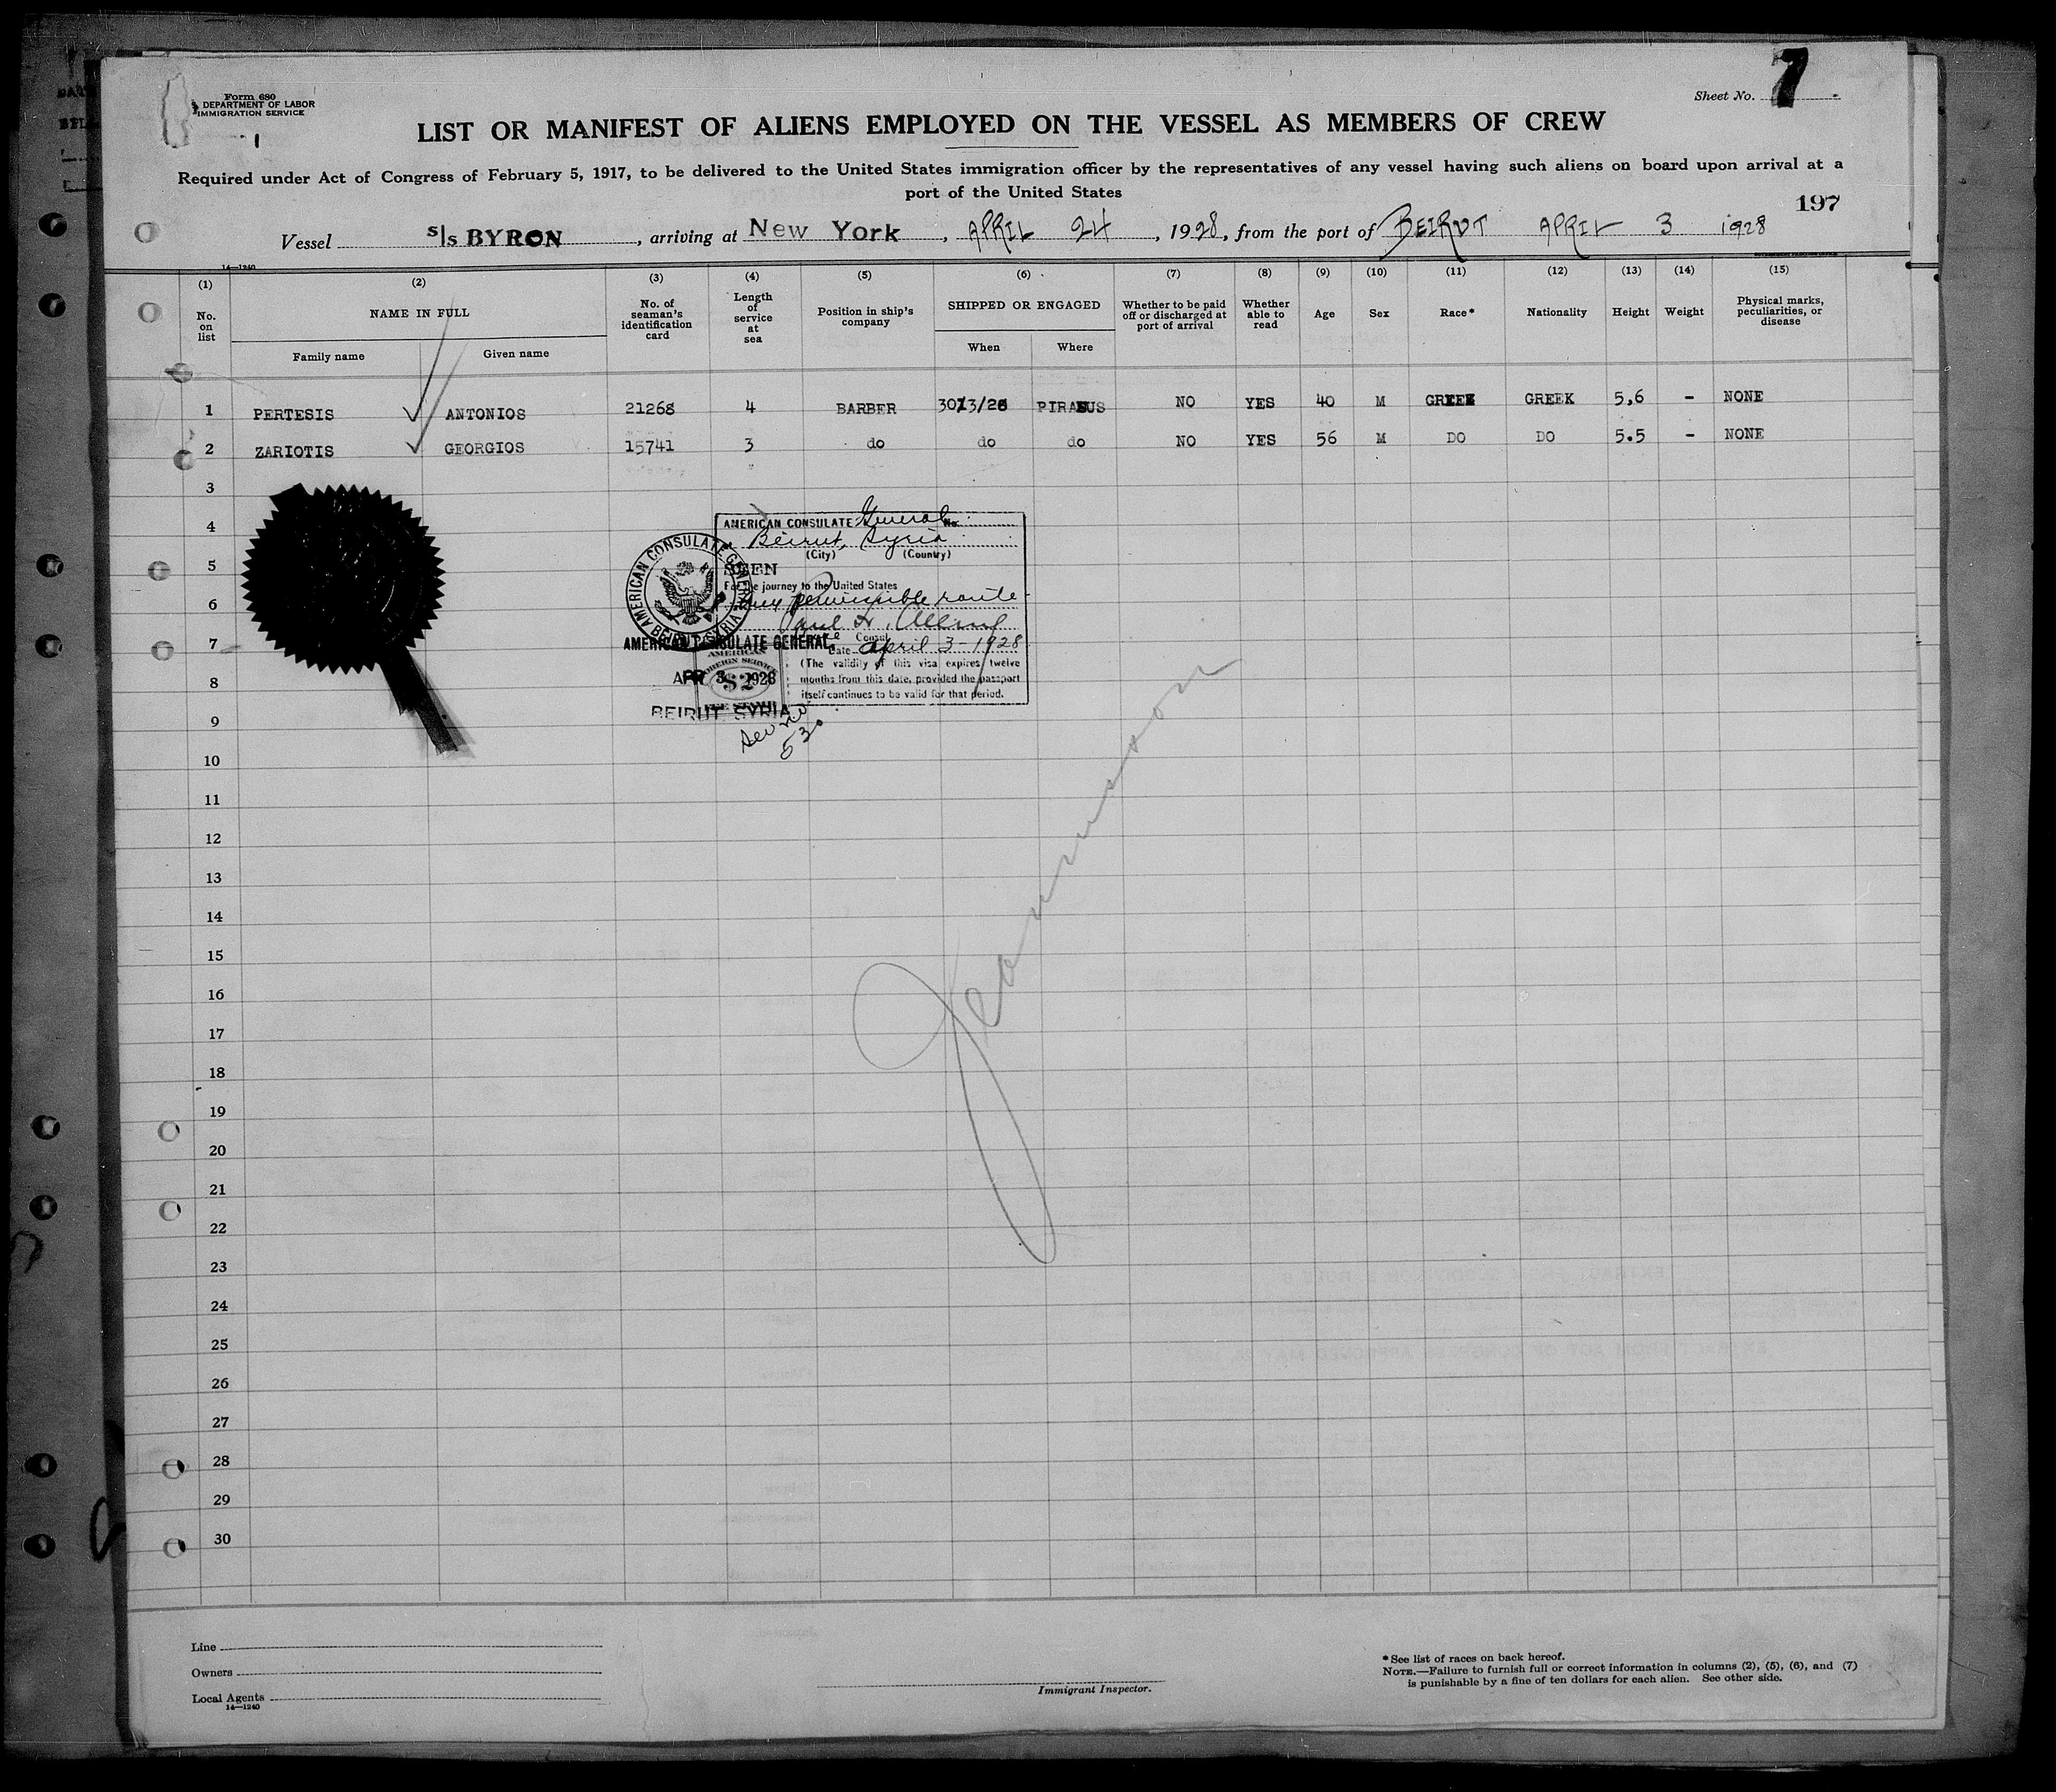 Form 680
DEPARTMENT OF LABOR
IMMIGRATION SERVICE
Sheet No. 7
LIST OR MANIFEST OF ALIENS EMPLOYED ON THE VESSEL AS MEMBERS OF CREW
Required under Act of Congress of February 5, 1917, to be delivered to the United States immigration officer by the representatives of any vessel having such aliens on board upon arrival at a
port of the United States
197
Vessel S/S BYRON, arriving at New York, APRIL 24, 1928, from the port of BEIRUT APRIL 3 1928
14—1240
(1) (2) (3) (4) (5) (6) (7) (8) (9) (10) (11) (12) (13) (14) (15)
No. on list NAME IN FULL No. of seaman's identification card Length of service at sea Position in ship's company SHIPPED OR ENGAGED Whether to be paid off or discharged at port of arrival Whether able to read Age Sex Race* Nationality Height Weight Physical marks, peculiarities, or disease
Family name Given name When Where
1 PERTESIS ANTONIOS 21268 4 BARBER 30/3/28 PIRAEUS NO YES 40 M GREEK GREEK 5,6 - NONE
2 ZARIOTIS GEORGIOS 15741 3 do do do NO YES 56 M DO DO 5.5 - NONE
3
4
5
6
7
8
9
10
11
12
13
14
15
16
17
18
19
20
21
22
23
24
25
26
27
28
29
30
AMERICAN CONSULATE General No.
Beirut, Syria
(City) (Country)
SEEN
For the journey to the United States
any permissible route
Paul H. Alling
Vice Consul
Date April 3 - 1928
(The validity of this visa expires twelve
months from this date, provided the passport
itself continues to be valid for that period.
AMERICAN CONSULATE GENERAL
BEIRUT, SYRIA
AMERICAN CONSULATE GENERAL,
APR 3 1928
BEIRUT SYRIA
AMERICAN
FOREIGN SERVICE
$2
FEE STAMP
530
Line
Owners
Local Agents
14—1240
Immigrant Inspector.
*See list of races on back hereof.
NOTE.—Failure to furnish full or correct information in columns (2), (5), (6), and (7)
is punishable by a fine of ten dollars for each alien. See other side.